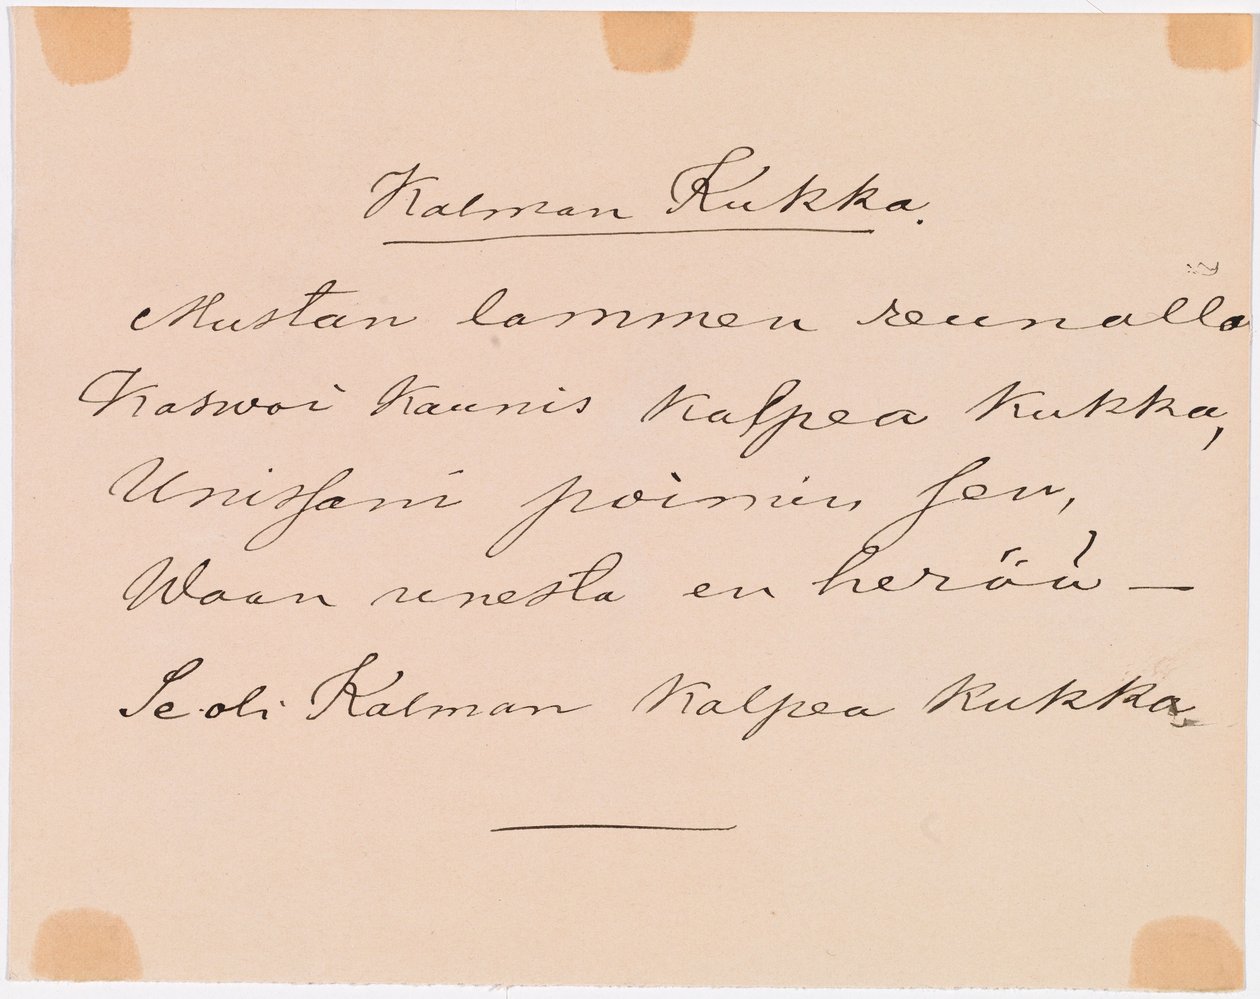 Kalman Kukka.
Mustan lammen reunalla
Kaswoi kaunis kalpea kukka,
Unissani poimin sen,
Waan unesta en herää —
Se oli Kalman kalpea kukka